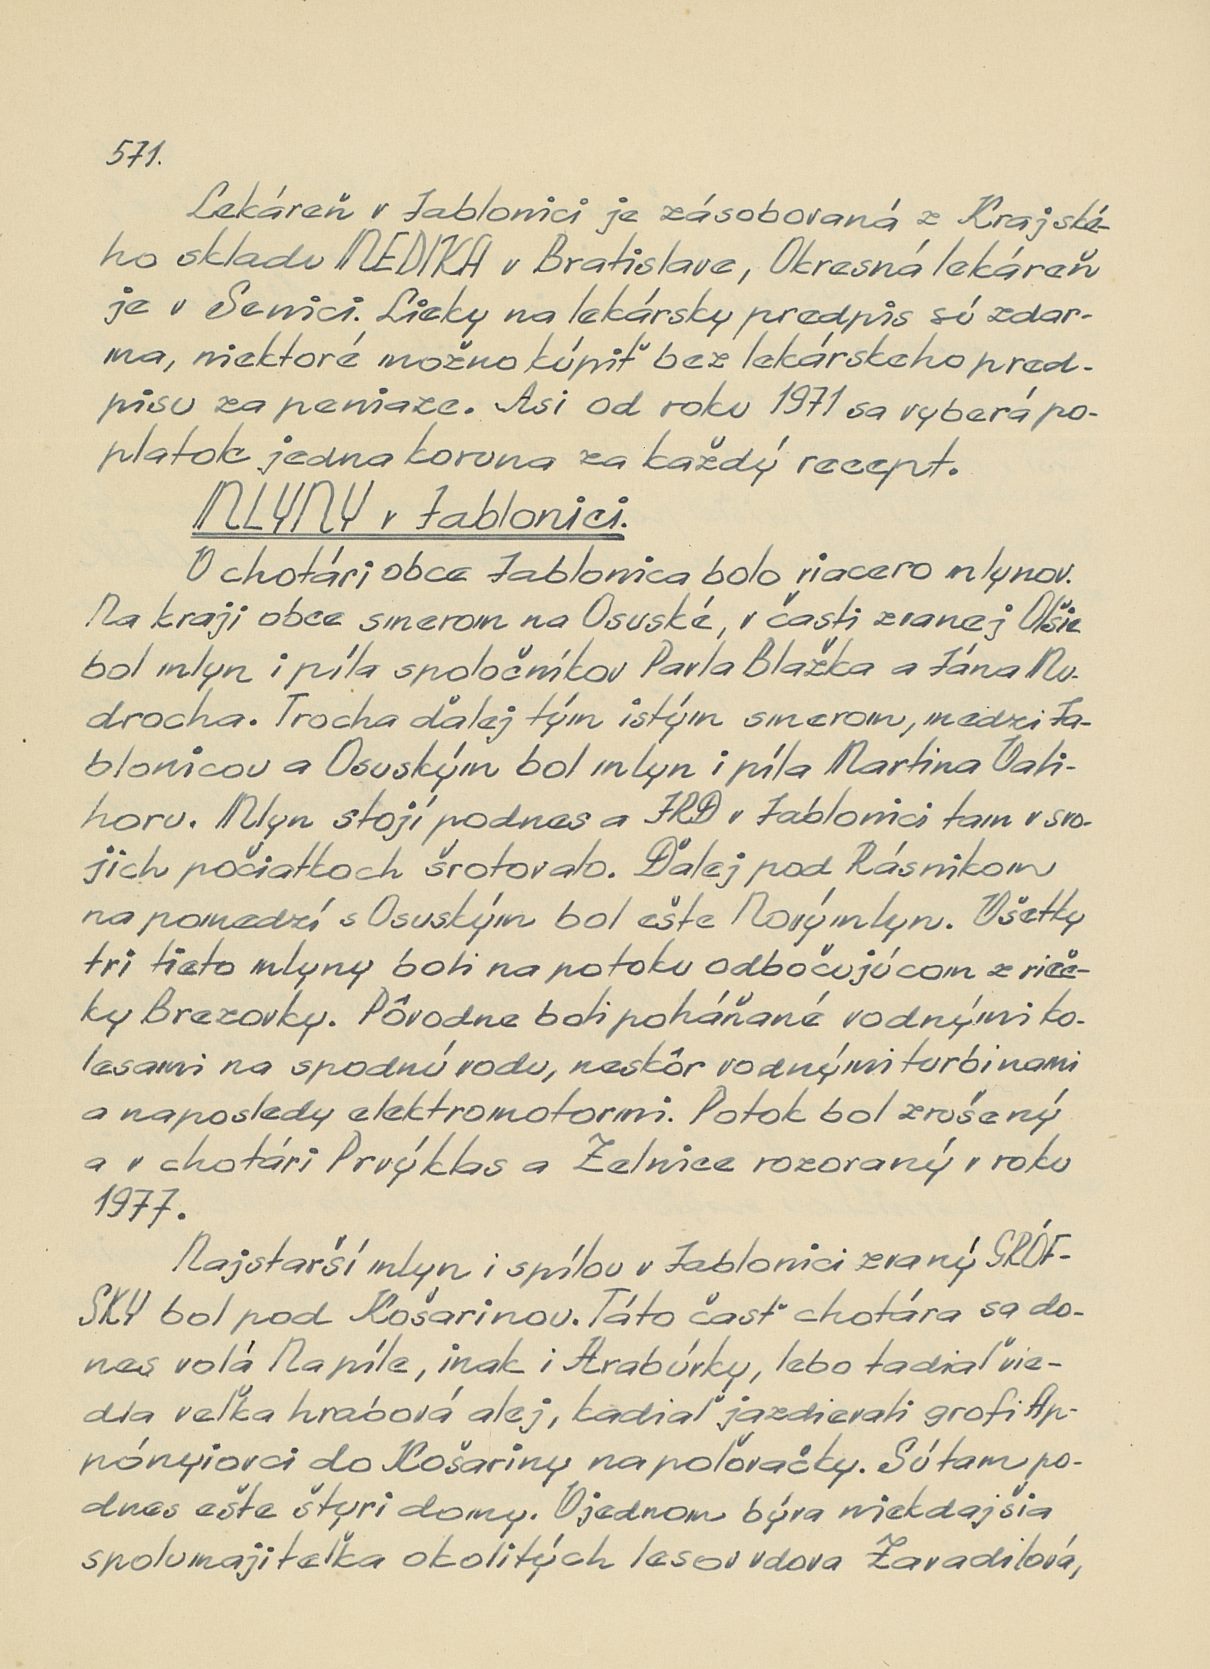 571.
Lekáreň v Jablonici je zásobovaná z Krajské-
ho skladu MEDIKA v Bratislave, Okresná lekáreň
je v Senici. Lieky na lekársky predpis sú zdar-
ma, niektoré možno kúpiť bez lekárskeho pred-
pisu za peniaze. Asi od roku 1971 sa vyberá po-
platok jedna koruna za každý recept.
MLYNY v Jablonici.
V chotári obce Jablonica bolo viacero mlynov.
Na kraji obce smerom na Osuské, v časti zvanej Olšie
bol mlyn i píla spoločníkov Pavla Blažka a Jána Mu-
drocha. Trocha ďalej tým istým smerom, medzi Ja-
blonicou a Osuským bol mlyn i píla Martina Vali-
horu. Mlyn stojí podnes a JRD v Jablonici tam v svo-
jich počiatkoch šrotovalo. Ďalej pod Rásnikom
na pomedzí s Osuským bol ešte Nový mlyn. Všetky
tri tieto mlyny boli na potoku odbočujúcom z rieč-
ky Brezovky. Pôvodne boli poháňané vodnými ko-
lesami na spodnú vodu, neskôr vodnými turbinami
a naposledy elektromotormi. Potok bol zrušený
a v chotári Prvýklas a Zelnice rozoraný v roku
1977.
Najstarší mlyn i spílou v Jablonici zvaný GRÓF-
SKY bol pod Košarinou. Táto časť chotára sa do-
nes volá Na píle, inak i Arabúrky, lebo tadiaľ vie-
dla veľka hrabová alej, kadiaľ jazdievali grofi Ap-
pónyiovci do Košariny na poľovačky. Sú tam po-
dnes ešte štyri domy. V jednom býva niekdajšia
spolumajiteľka okolitých lesov vdova Zavadilová,